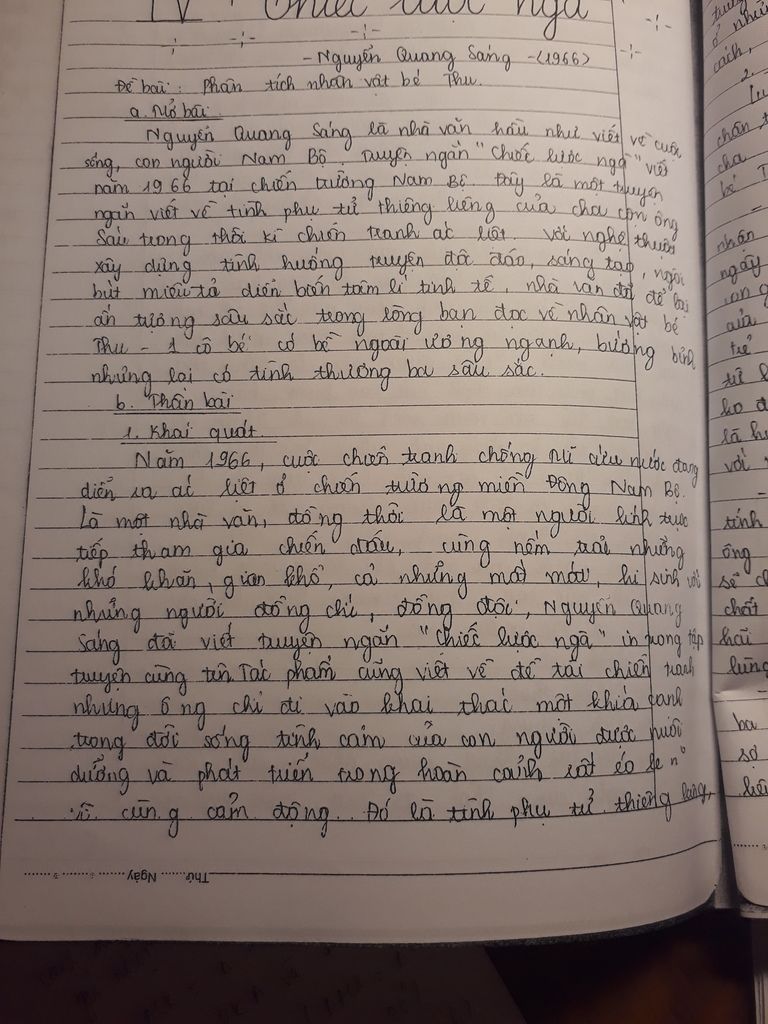 IV Chiếc lược ngà
- Nguyễn Quang Sáng -(1966)
Đề bài: Phân tích nhân vật bé Thu.
a. Mở bài
Nguyễn Quang Sáng là nhà văn hầu như viết về cuộc
sống, con người Nam Bộ. Truyện ngắn "Chiếc lược ngà" viết
năm 1966 tại chiến trường Nam Bộ. Đây là một truyện
ngắn viết về tình phụ tử thiêng liêng của cha con ông
Sáu trong thời kì chiến tranh ác liệt. Với nghệ thuật
xây dựng tình huống truyện độc đáo, sáng tạo, ngòi
bút miêu tả diễn biến tâm lí tinh tế, nhà văn đã để lại
ấn tượng sâu sắc trong lòng bạn đọc về nhân vật bé
Thu - 1 cô bé có bề ngoài ương ngạnh, bướng bỉnh
nhưng lại có tình thương ba sâu sắc.
b. Thân bài
1. Khái quát.
Năm 1966, cuộc chiến tranh chống Mĩ cứu nước đang
diễn ra ác liệt ở chiến trường miền Đông Nam Bộ.
Là một nhà văn, đồng thời là một người lính trực
tiếp tham gia chiến đấu, cùng nếm trải những
khó khăn, gian khổ, cả những mất mát, hi sinh với
những người đồng chí, đồng đội, Nguyễn Quang
Sáng đã viết truyện ngắn "Chiếc lược ngà" in trong tập
truyện cùng tên. Tác phẩm cũng viết về đề tài chiến tranh
nhưng ông chỉ đi vào khai thác một khía cạnh
trong đời sống tình cảm của con người được nuôi
dưỡng và phát triển trong hoàn cảnh rất éo le n°
vô cùng cảm động. Đó là tình phụ tử thiêng liêng,
Thứ Ngày
2.
cha
bé T
nhân
ngày
của
trẻ
là h
với
tính
ông
chót
hãi
lùng
ba
sợ